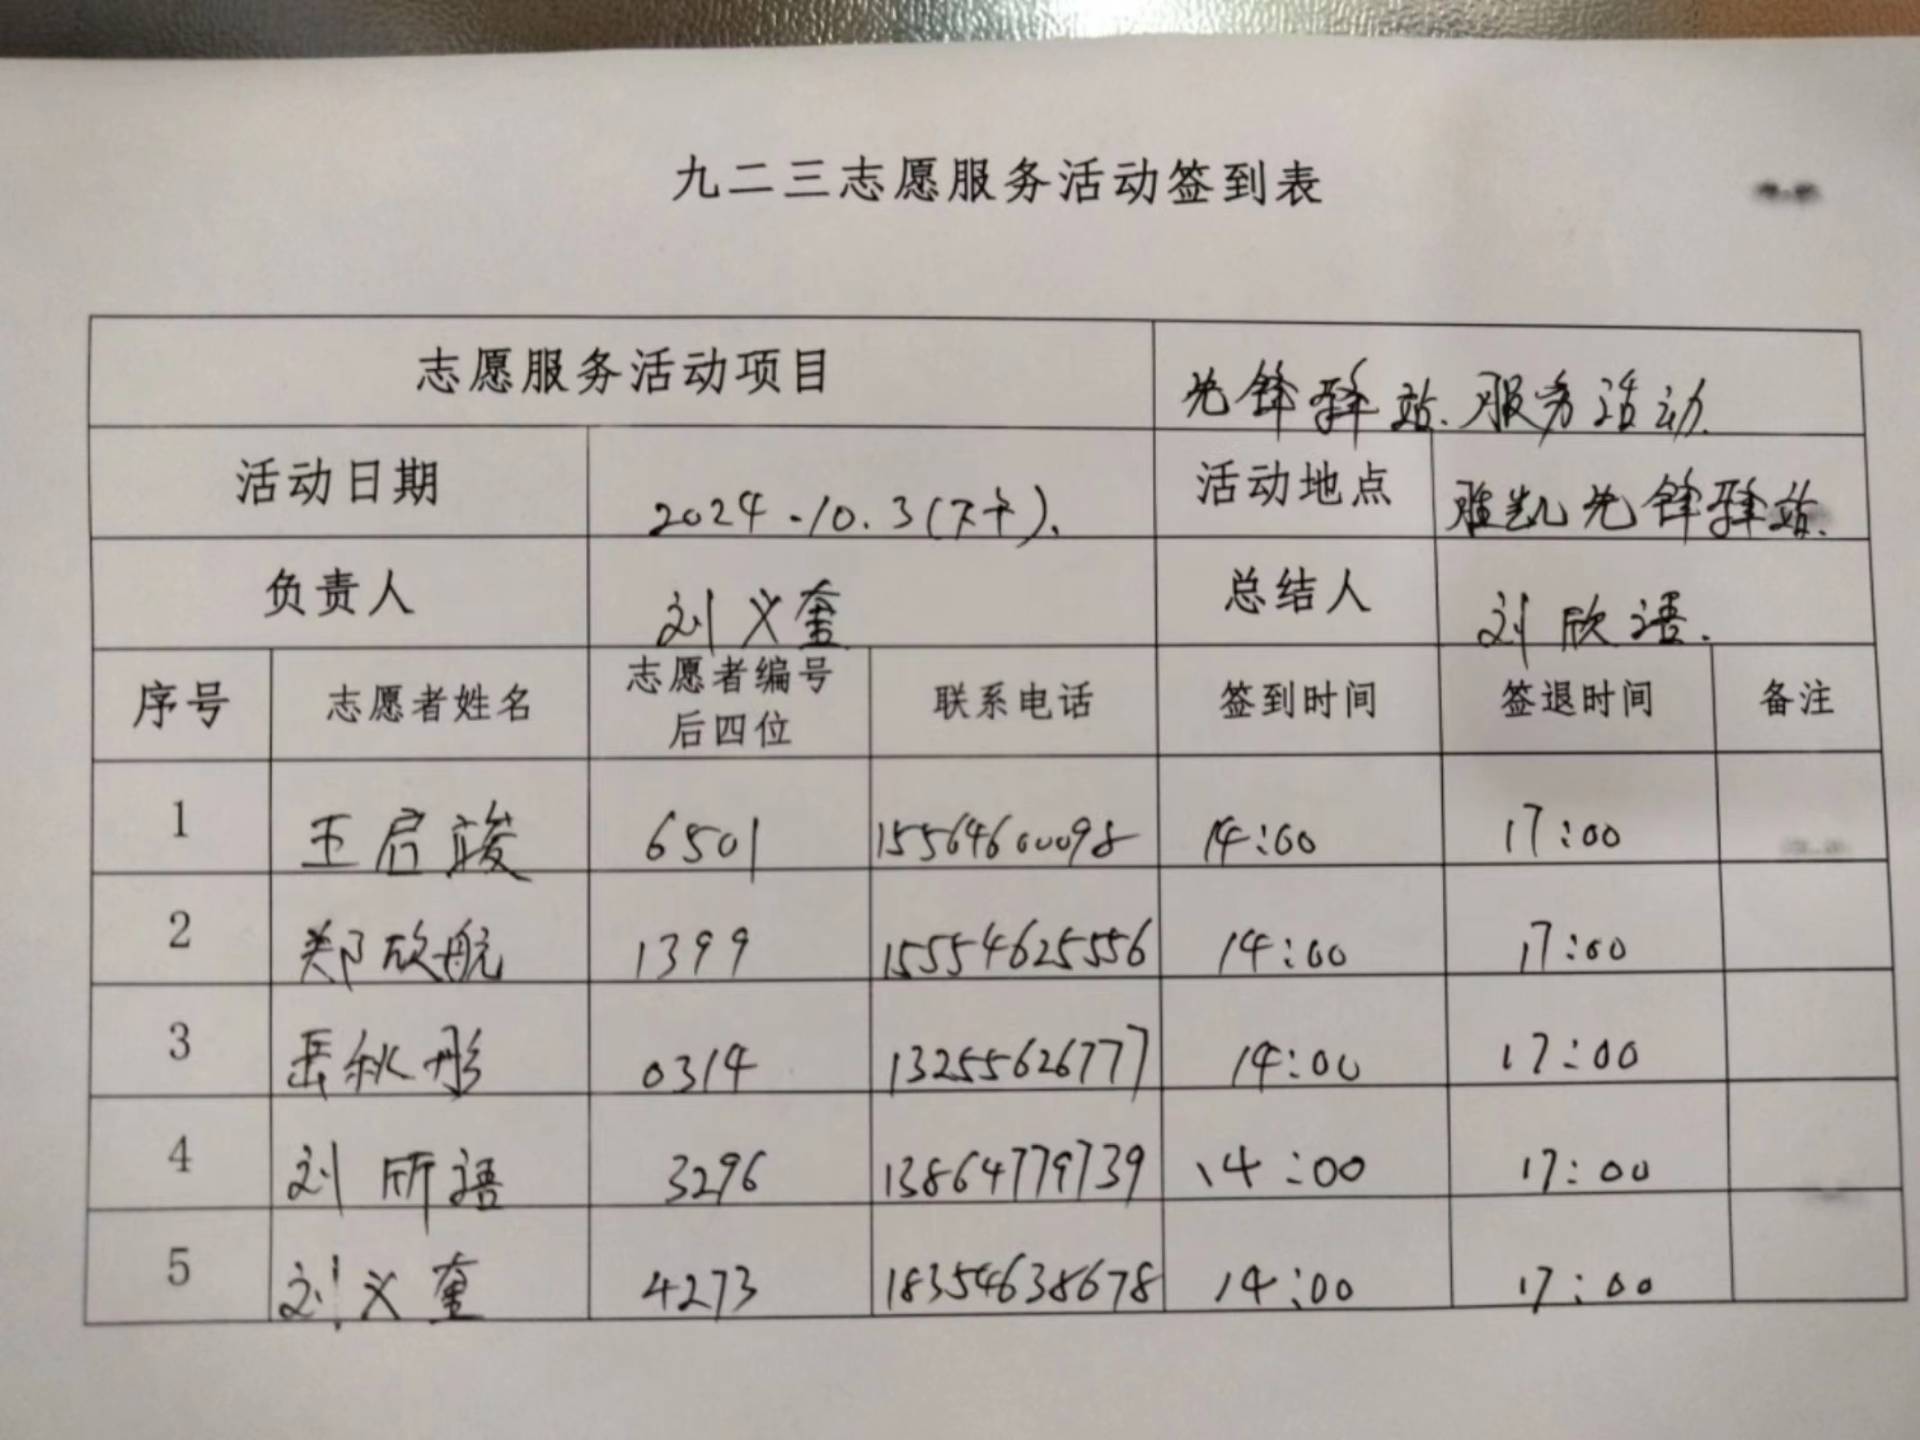 九二三志愿服务活动签到表
志愿服务活动项目 先锋驿站.服务活动.
活动日期 2024.10.3(下午). 活动地点 雅凯先锋驿站.
负责人 刘义奎 总结人 刘欣语.
序号 志愿者姓名 志愿者编号 联系电话 签到时间 签退时间 备注
后四位
1 王启骏 6501 15564600098 14:00 17:00
2 郑欣航 1399 15554625556 14:00 17:00
3 岳秋彤 0314 13255626777 14:00 17:00
4 刘昕语 3296 13864779739 14:00 17:00
5 刘义奎 4273 18354638678 14:00 17:00